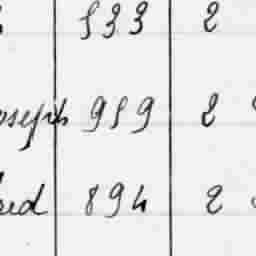 533 2
oseph 959 2
red 894 2